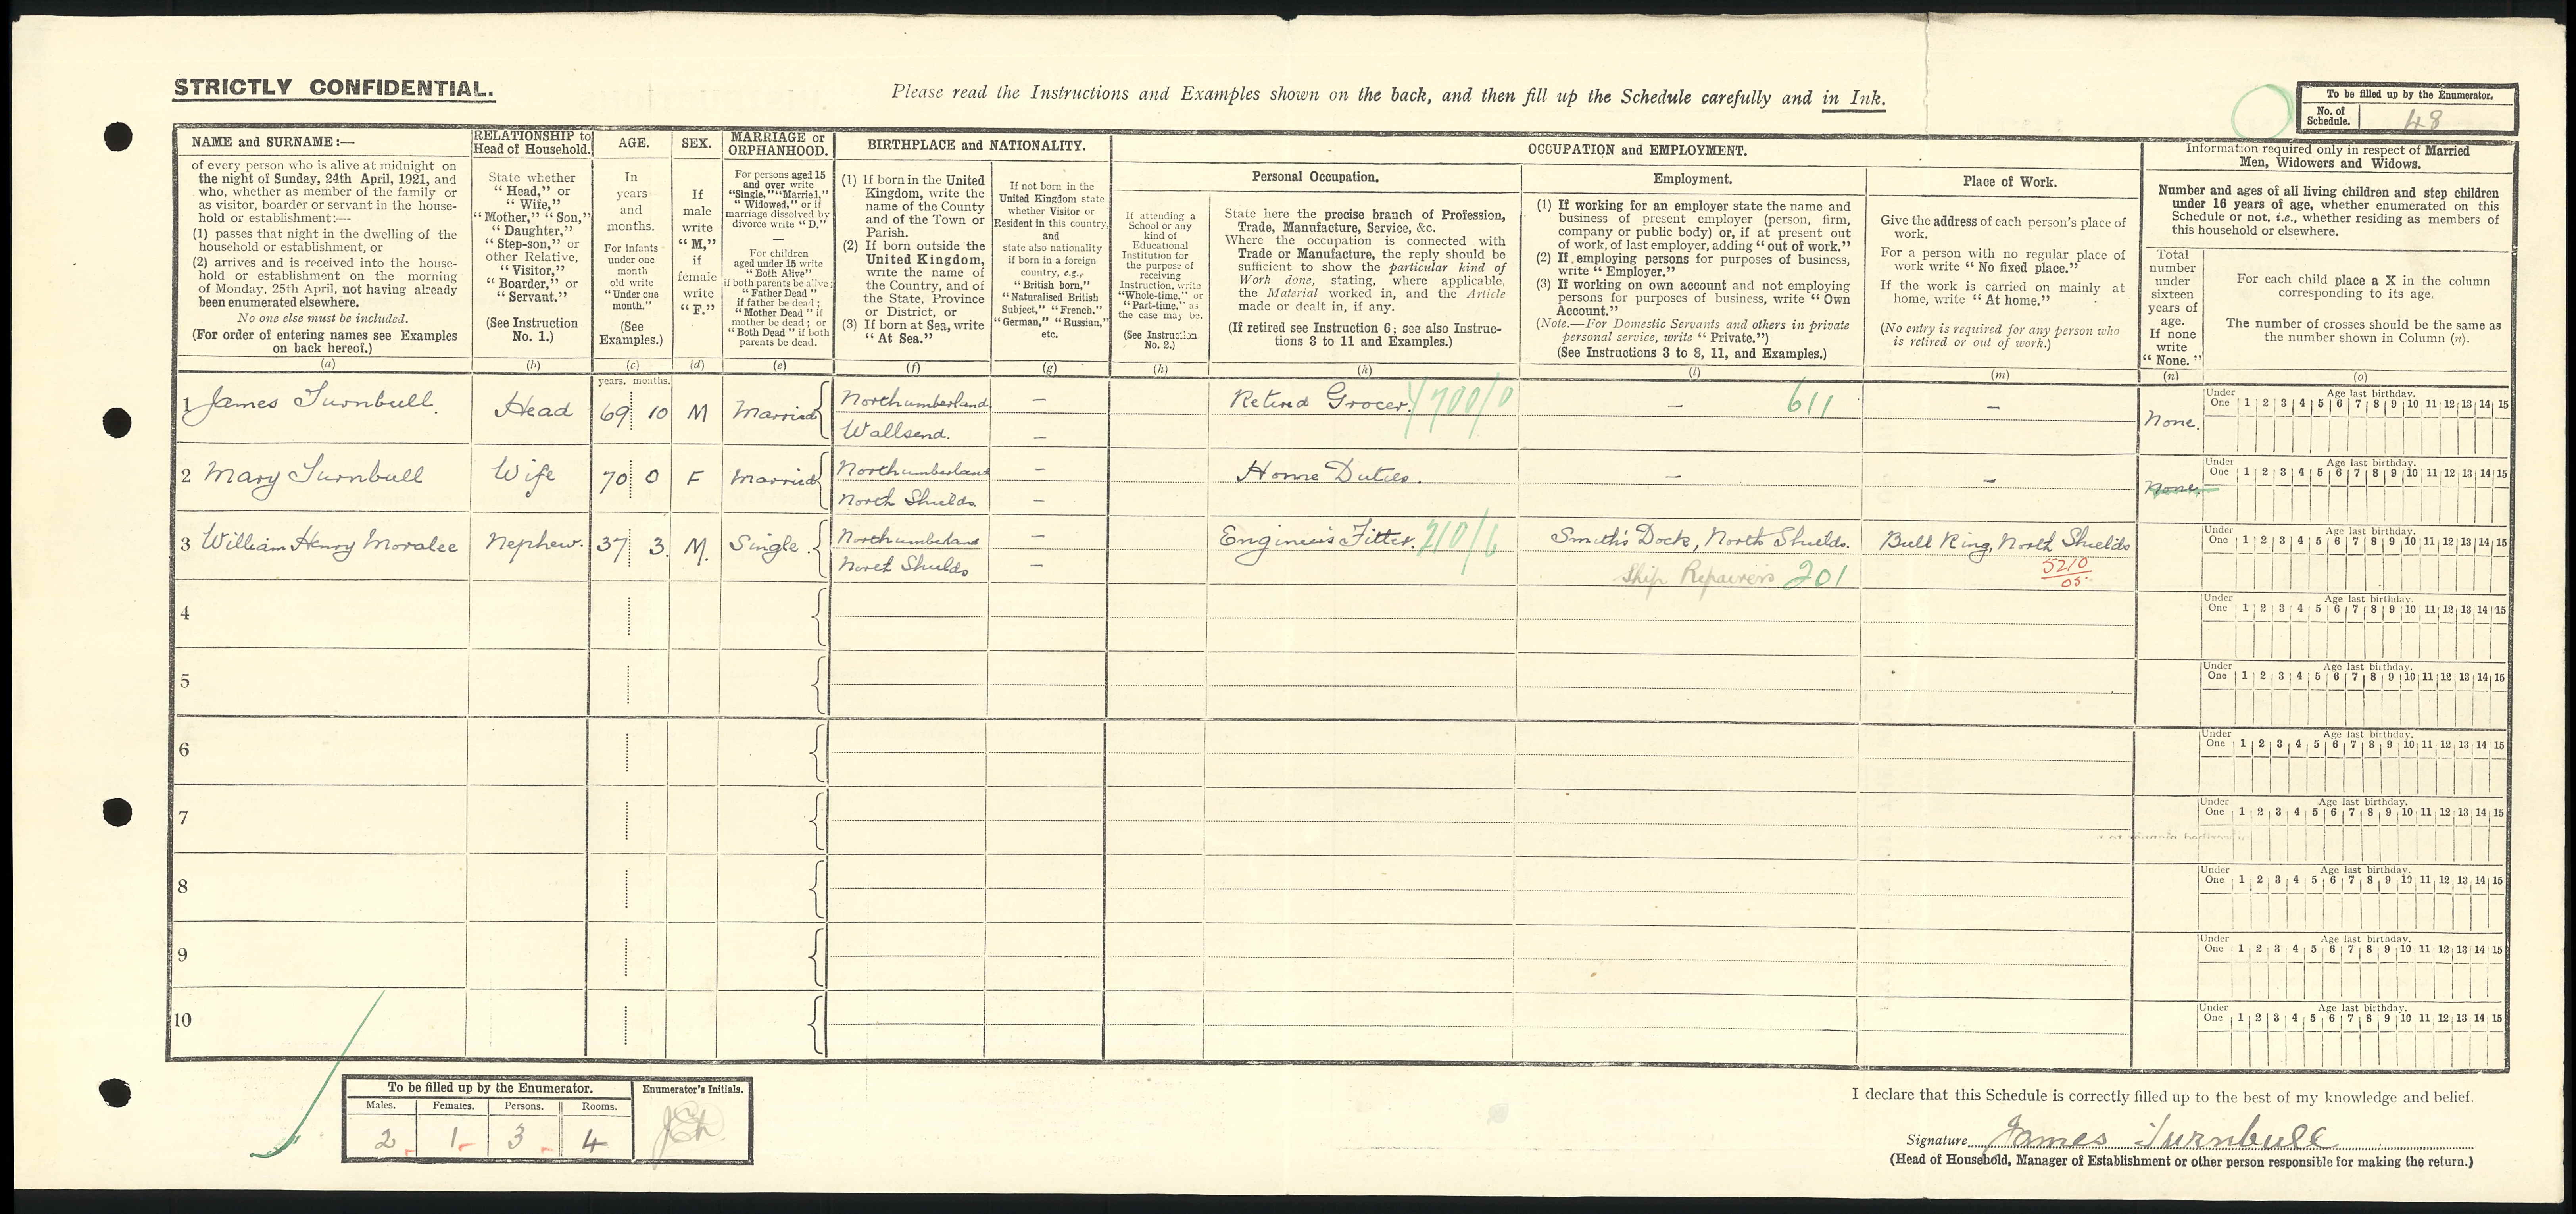 STRICTLY CONFIDENTIAL.
Please read the Instructions and Examples shown on the back, and then fill up the Schedule carefully and in Ink.
To be filled up by the Enumerator.
No. of Schedule. 48
NAME and SURNAME:—
of every person who is alive at midnight on
the night of Sunday, 24th April, 1921, and
who, whether as member of the family or
as visitor, boarder or servant in the house-
hold or establishment:—
(1) passes that night in the dwelling of the
household or establishment, or
(2) arrives and is received into the house-
hold or establishment on the morning
of Monday, 25th April, not having already
been enumerated elsewhere.
No one else must be included.
(For order of entering names see Examples
on back hereof.)
(a)
RELATIONSHIP to
Head of Household.
State whether
"Head," or
"Wife,"
"Mother," "Son,"
"Daughter,"
"Step-son," or
other Relative,
"Visitor,"
"Boarder," or
"Servant."
(See Instruction
No. 1.)
(b)
AGE.
In
years
and
months.
For infants
under one
month
old write
"Under one
month."
(See
Examples.)
(c)
SEX.
If
male
write
"M,"
if
female
write
"F."
(d)
MARRIAGE or
ORPHANHOOD.
For persons aged 15
and over write
"Single," "Married,"
"Widowed," or if
marriage dissolved by
divorce write "D."
—
For children
aged under 15 write
"Both Alive"
if both parents be alive;
"Father Dead"
if father be dead;
"Mother Dead" if
mother be dead; or
"Both Dead" if both
parents be dead.
(e)
BIRTHPLACE and NATIONALITY.
(1) If born in the United
Kingdom, write the
name of the County
and of the Town or
Parish.
(2) If born outside the
United Kingdom,
write the name of
the Country, and of
the State, Province
or District, or
(3) If born at Sea, write
"At Sea."
(f)
If not born in the
United Kingdom state
whether Visitor or
Resident in this country,
and
state also nationality
if born in a foreign
country, e.g.,
"British born,"
"Naturalised British
Subject," "French."
"German," "Russian,"
etc.
(g)
OCCUPATION and EMPLOYMENT.
If attending a
School or any
kind of
Educational
Institution for
the purpose of
receiving
Instruction, write
"Whole-time," or
"Part-time," as
the case may be.
(See Instruction
No. 2.)
(h)
Personal Occupation.
State here the precise branch of Profession,
Trade, Manufacture, Service, &c.
Where the occupation is connected with
Trade or Manufacture, the reply should be
sufficient to show the particular kind of
Work done, stating, where applicable,
the Material worked in, and the Article
made or dealt in, if any.
(If retired see Instruction 6; see also Instruc-
tions 3 to 11 and Examples.)
(k)
Employment.
(1) If working for an employer state the name and
business of present employer (person, firm,
company or public body) or, if at present out
of work, of last employer, adding "out of work."
(2) If employing persons for purposes of business,
write "Employer."
(3) If working on own account and not employing
persons for purposes of business, write "Own
Account."
(Note.—For Domestic Servants and others in private
personal service, write "Private.")
(See Instructions 3 to 8, 11, and Examples.)
(l)
Place of Work.
Give the address of each person's place of
work.
For a person with no regular place of
work write "No fixed place."
If the work is carried on mainly at
home, write "At home."
(No entry is required for any person who
is retired or out of work.)
(m)
Information required only in respect of Married
Men, Widowers and Widows.
Number and ages of all living children and step children
under 16 years of age, whether enumerated on this
Schedule or not, i.e., whether residing as members of
this household or elsewhere.
Total
number
under
sixteen
years of
age.
If none
write
"None."
(n)
For each child place a X in the column
corresponding to its age.
The number of crosses should be the same as
the number shown in Column (n).
(o)
years. months.
1 James Turnbull. Head 69 10 M Married Northumberland. — Retired Grocer. 611 — None.
Wallsend. —
Under One Age last birthday. 1 2 3 4 5 6 7 8 9 10 11 12 13 14 15
2 Mary Turnbull Wife 70 0 F Married Northumberland — Home Duties. — — None.
North Shields. —
Under One Age last birthday. 1 2 3 4 5 6 7 8 9 10 11 12 13 14 15
3 William Henry Moralee Nephew. 37 3. M. Single. Northumberland — Engineer's Fitter. 210/6 Smith's Dock, North Shields. Bull Ring, North Shields
North Shields — Ship Repairers 201 5210
05
Under One Age last birthday. 1 2 3 4 5 6 7 8 9 10 11 12 13 14 15
4 Under One Age last birthday. 1 2 3 4 5 6 7 8 9 10 11 12 13 14 15
5 Under One Age last birthday. 1 2 3 4 5 6 7 8 9 10 11 12 13 14 15
6 Under One Age last birthday. 1 2 3 4 5 6 7 8 9 10 11 12 13 14 15
7 Under One Age last birthday. 1 2 3 4 5 6 7 8 9 10 11 12 13 14 15
8 Under One Age last birthday. 1 2 3 4 5 6 7 8 9 10 11 12 13 14 15
9 Under One Age last birthday. 1 2 3 4 5 6 7 8 9 10 11 12 13 14 15
10 Under One Age last birthday. 1 2 3 4 5 6 7 8 9 10 11 12 13 14 15
To be filled up by the Enumerator.
Enumerator's Initials.
Males. Females. Persons. Rooms.
2 1 3 4
I declare that this Schedule is correctly filled up to the best of my knowledge and belief.
Signature James Turnbull
(Head of Household, Manager of Establishment or other person responsible for making the return.)